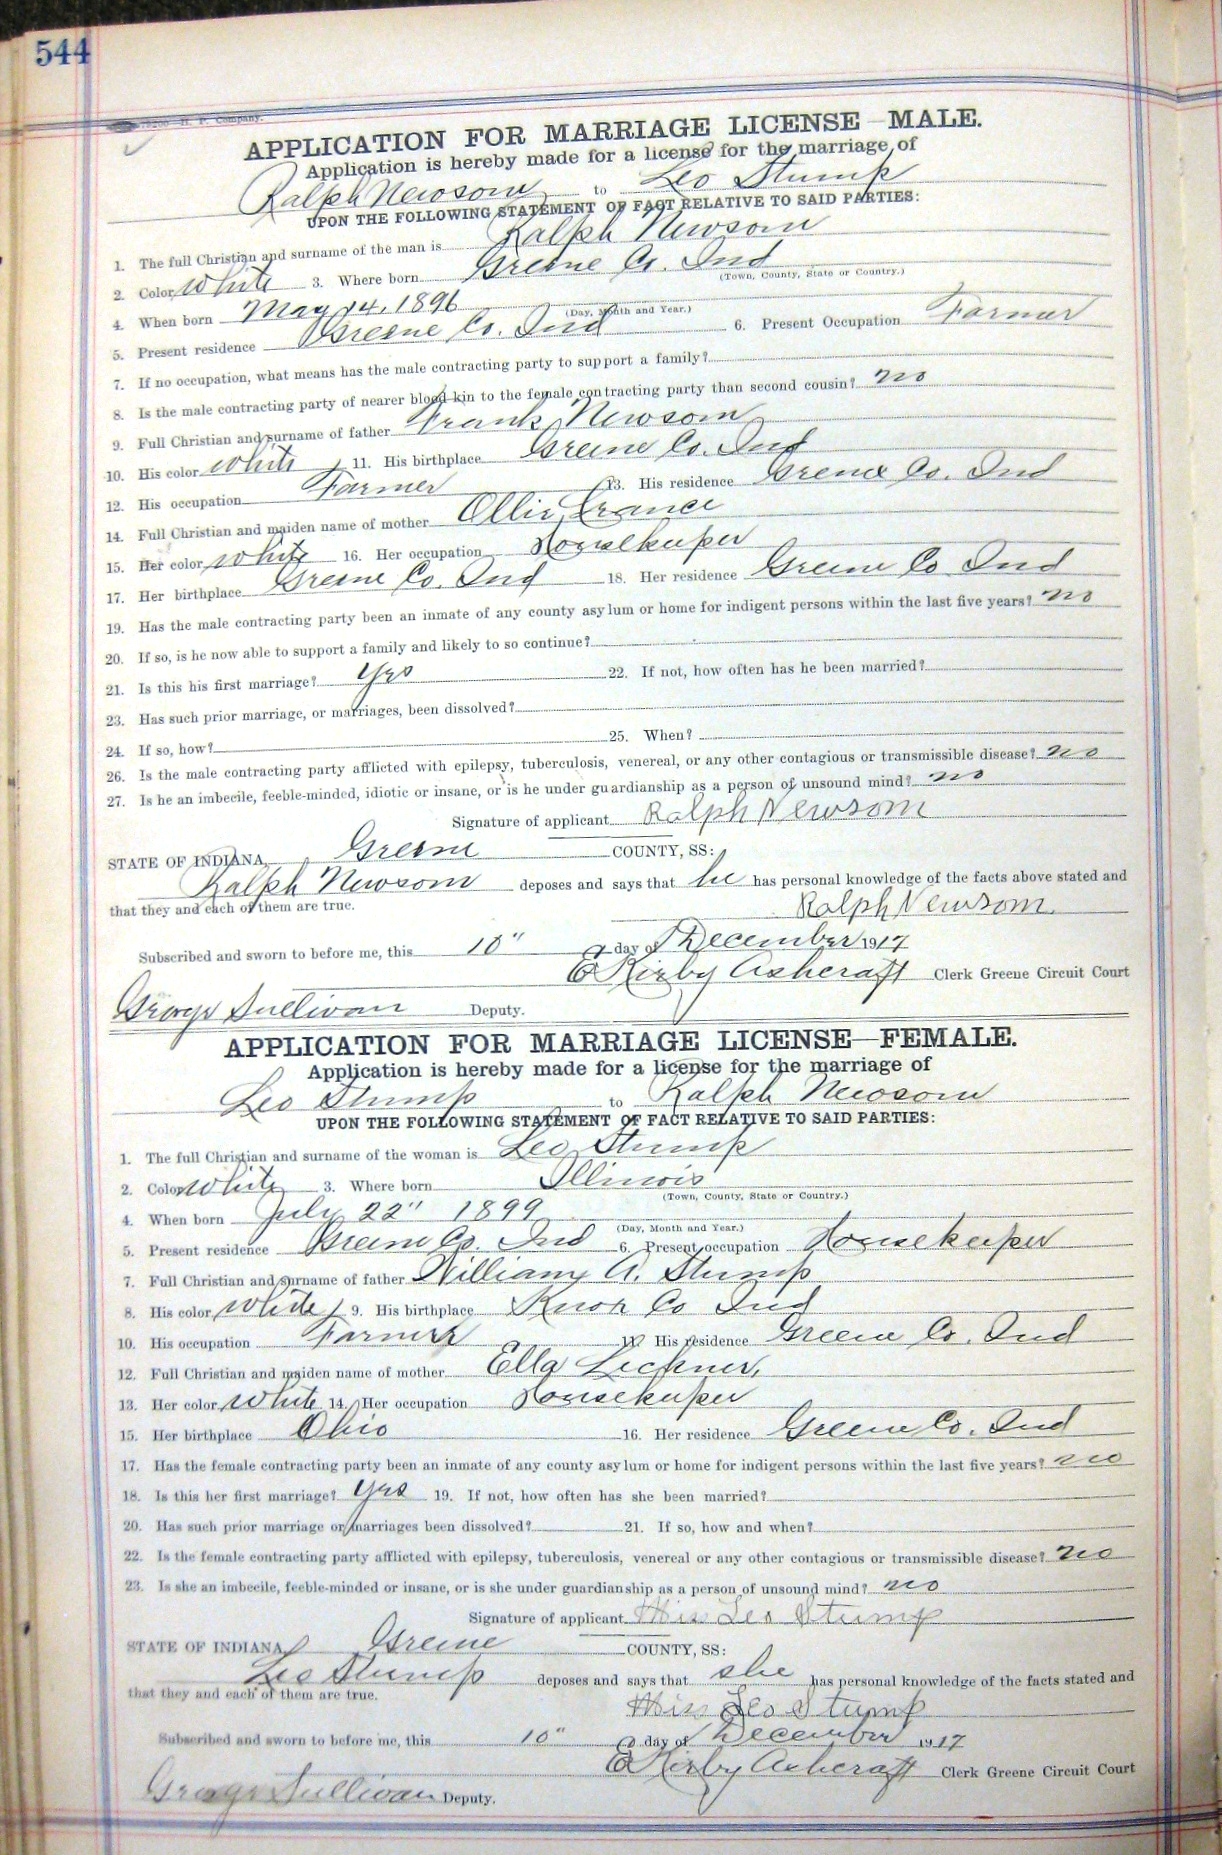 544
H. P. Company.
APPLICATION FOR MARRIAGE LICENSE—MALE.
Application is hereby made for a license for the marriage of
Ralph Newsom to Leo Stump
UPON THE FOLLOWING STATEMENT OF FACT RELATIVE TO SAID PARTIES:
1. The full Christian and surname of the man is Ralph Newsom
2. Color White 3. Where born Greene Co. Ind
(Town, County, State or Country.)
4. When born May 14, 1896
(Day, Month and Year.)
5. Present residence Greene Co. Ind 6. Present Occupation Farmer
7. If no occupation, what means has the male contracting party to support a family?
8. Is the male contracting party of nearer blood kin to the female contracting party than second cousin? no
9. Full Christian and surname of father Frank Newsom
10. His color white 11. His birthplace Greene Co. Ind
12. His occupation Farmer 13. His residence Greene Co. Ind
14. Full Christian and maiden name of mother Ollie Crance
15. Her color white 16. Her occupation Housekeeper
17. Her birthplace Greene Co. Ind 18. Her residence Greene Co Ind
19. Has the male contracting party been an inmate of any county asylum or home for indigent persons within the last five years? no
20. If so, is he now able to support a family and likely to so continue?
21. Is this his first marriage? yes 22. If not, how often has he been married?
23. Has such prior marriage, or marriages, been dissolved?
24. If so, how? 25. When?
26. Is the male contracting party afflicted with epilepsy, tuberculosis, venereal, or any other contagious or transmissible disease? no
27. Is he an imbecile, feeble-minded, idiotic or insane, or is he under guardianship as a person of unsound mind? no
Signature of applicant Ralph Newsom
STATE OF INDIANA, Greene COUNTY, SS:
Ralph Newsom deposes and says that he has personal knowledge of the facts above stated and
that they and each of them are true.
Ralph Newsom.
Subscribed and sworn to before me, this 10" day of December 1917
E Kirby Ashcraft Clerk Greene Circuit Court
George Sullivan Deputy.
APPLICATION FOR MARRIAGE LICENSE—FEMALE.
Application is hereby made for a license for the marriage of
Leo Stump to Ralph Newsom
UPON THE FOLLOWING STATEMENT OF FACT RELATIVE TO SAID PARTIES:
1. The full Christian and surname of the woman is Leo Stump
2. Color white 3. Where born Illinois
(Town, County, State or Country.)
4. When born July 22" 1899
(Day, Month and Year.)
5. Present residence Greene Co. Ind 6. Present occupation Housekeeper
7. Full Christian and surname of father William A. Stump
8. His color white 9. His birthplace Knox Co Ind
10. His occupation Farmer 11. His residence Greene Co. Ind
12. Full Christian and maiden name of mother Ella Leckner,
13. Her color white 14. Her occupation Housekeeper
15. Her birthplace Ohio 16. Her residence Greene Co. Ind
17. Has the female contracting party been an inmate of any county asylum or home for indigent persons within the last five years? no
18. Is this her first marriage? yes 19. If not, how often has she been married?
20. Has such prior marriage or marriages been dissolved? 21. If so, how and when?
22. Is the female contracting party afflicted with epilepsy, tuberculosis, venereal or any other contagious or transmissible disease? no
23. Is she an imbecile, feeble-minded or insane, or is she under guardianship as a person of unsound mind? no
Signature of applicant Miss Leo Stump
STATE OF INDIANA, Greene COUNTY, SS:
Leo Stump deposes and says that she has personal knowledge of the facts stated and
that they and each of them are true.
Miss Leo Stump
Subscribed and sworn to before me, this 10" day of December 1917
E Kirby Ashcraft Clerk Greene Circuit Court
George Sullivan Deputy.